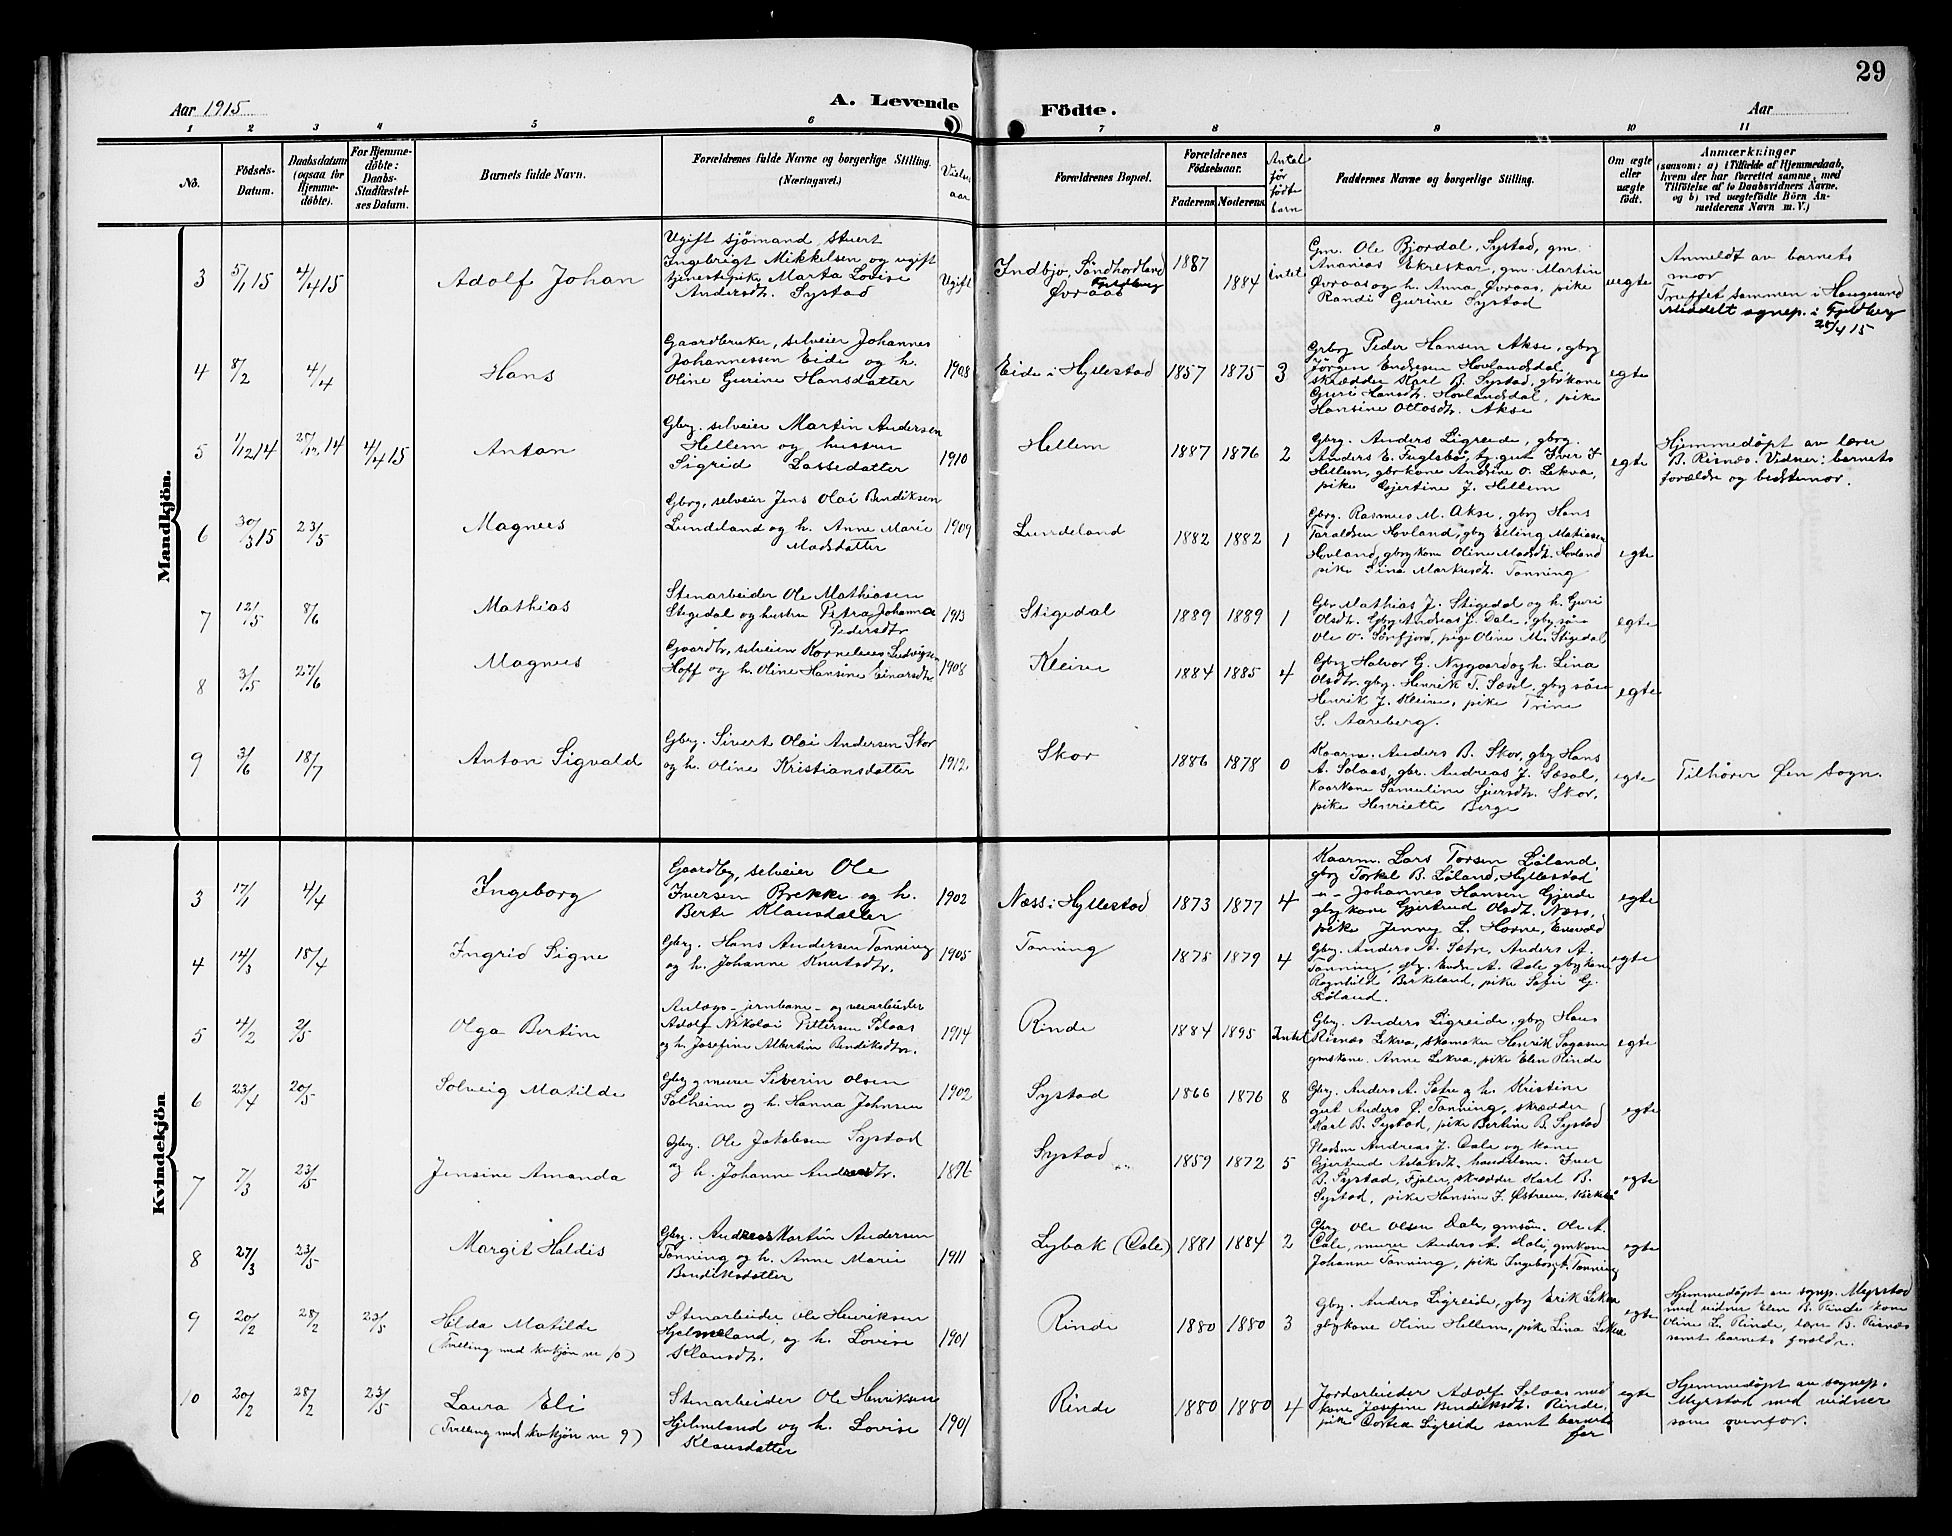 29
Aar 1915
A. Levende
Födte.
Aar
1 2 3 4 5 6 7 8 9 10 11
No.
Födsels-
Datum.
Daabsdatum
(ogsaa for
Hjemme-
döbte).
For Hjemme-
döbte:
Daabs-
Stadfæstel-
ses Datum.
Barnets fulde Navn.
Forældrenes fulde Navne og borgerlige Stilling.
(Næringsvei.)
Vielses
aar
Forældrenes Bopæl.
Forældrenes
Födselsaar.
Faderens Moderens
Antal
før
fødte
barn
Faddernes Navne og borgerlige Stilling.
Om ægte
eller
uægte
födt.
Anmærkninger
(saasom: a) i Tilfælde af Hjemmedaab,
hvem der har forrettet samme, med
Tilföielse af to Daabsvidners Navne,
og b) ved uægtefödte Börn An-
melderens Navn m. V.)
Mandkjön.
3 5/1 15 4/4 15
Adolf Johan
Ugift sjömand, stuert
Ingebrigt Mikkelsen og ugift
tjenestepike Marta Lovise
Andersdt. Systad
Ugift
Indbjo, Söndhordland
Fjeldberg
Øvraas
1887 1884 intet
Gm. Ole Bjordal, Systad, gm.
Ananias Ekreskar, gm. Martin
Øvraas og h. Anna Øvraas, pike
Randi Gurine Systad
uegte
Anmeldt av barnets
mor
Truffet sammen i Haugesund
Meddelt sognep. i Fjeldberg
28/4 15
4 8/2 4/4
Hans
Gaardbruker, selveier Johannes
Johannessen Eide og h.
Oline Gurine Hansdatter
1908
Eide i Hyllestad
1857 1875 3
Grbrg Peder Hansen Akse, gbrg
Jörgen Endresen Hovlandsdal,
skrædder Karl B. Systad, gbr'kone
Guri Hansdt. Hovlandsdal, pike
Hansine Ottosdt. Akse
egte
5 1/12 14 25/12 14 4/4 15
Anton
Gbrg. selveier Martin Andersen
Hellem og hustru
Sigrid Lassedatter
1910
Hellem
1887 1876 2
Gbrg. Anders Ligreide, gbrg.
Anders E. Fuglsbö, tj. gut Iver I.
Hellem, gbrkone Andrine O. Lekva,
pike Gjertine J. Hellem
egte
Hjemmedöpt av lærer
B. Risnæs. Vidner: barnets
forældre og bedstemor.
6 30/3 15 23/5
Magnus
Gbrg, selveier Jens Olai Bendiksen
Lundeland og h. Anne Marie
Madsdatter
1909
Lundeland
1882 1882 1
Gbrg. Rasmus M. Akse, gbrg Hans
Taraldsen Hovland, gbrg Elling Matiasen
Hovland, gbrg kone Oline Madsdt. Hovland
pike Lina Markusdt. Tonning
egte
7 12/5 8/6
Mathias
Stenarbeider Ole Mathiasen
Stigedal og hustru Petra Johanna
Pedersdtr
1913
Stigedal
1889 1889 1
Gbr. Mathias J. Stigedal og h. Guri
Olsdt. Gbrg Andreas J. Dale, gbrg sön
Ole O. Sörfjord, pige Oline M. Stigedal
egte
8 3/5 27/6
Magnus
Gaardbr, selveier Kornelius Ludvigsen
Hoff og h. Oline Hansine Einarsdtr
1908
Kleive
1884 1885 4
Gbrg Halvor G. Nygaard og h. Lina
Olsdtr. gbrg. Henrik T. Sæsol, gbrg sön
Henrik J. Kleive, pike Trine
S. Aareberg.
egte
9 3/6 18/7
Anton Sigvald
Gbrg. Sivert Olai Andersen Skor
og h. Oline Kristiansdatter
1912.
Skor
1886 1878 0
Kaarm. Anders B. Skor, gbrg Hans
A. Solaas, gbr. Andreas J. Sæsol,
kaarkone Samueline Sjursdt. Skor,
pike Henriette Berge
egte
Tilhörer Øen sogn.
Kvindekjön
3 17/1 4/4
Ingeborg
Gaardbrg, selveier Ole
Iversen Brekke og h.
Berte Klausdatter
1902
Næss i Hyllestad
1873 1877 4
Kaarm. Lars Torsen Löland,
gbrg Torkel B. Löland, Hyllestad
-"- Johannes Hansen Gjerde
gbrg kone Gjertrud Olsdt. Næss,
pike Jenny L. Horne, Enevold
egte
4 14/3 18/4
Ingrid Signe
Gbrg. Hans Andersen Tonning
og h. Johanne Knutsdtr.
1905
Tonning
1878 1879 4
Gbrg. Anders A. Sætre, Anders A.
Tonning, gbrg. Endre A. Dale gbrg kone
Ragnhild Birkeland, pike Sofie G.
Löland.
egte
5 4/2 2/5
Olga Bertine
Anlægs- jernbane- og veiarbeider
Adolf Nikolai Pettersen Solaas
og h. Josefine Albertine Bendiksdtr.
1914
Rinde
1884 1895 Intet
Gbrg. Anders Ligreide, gbrg Hans
Risnæs Lekva, skomaker Henrik
gmskone. Anne Lekva, pike Elen Rinde
egte
6 23/4 20/5
Solveig Matilde
Gbrg g murer Severin Olsen
Solheim og h. Hanna Johnsen
1902
Systad
1866 1876 8
Gbrg. Anders A. Sætre og h. Kristine
gut Anders Ø. Tonning, skrædder
Karl B. Systad, pike Bertine B. Systad
egte
7 7/3 23/5
Jensine Amanda
Gbrg. Ole Jakobsen Systad
og h. Johanne Andreasdtr.
1896
Systad
1859 1872 5
Pladsm Andreas J. Dale og kone
Gjertrud Aslaksdt. handelsm. Iver
B. Systad, Fjaler, skrædder Karl B.
Systad, pike Hansine J. Østrem,
egte
8 27/3 23/5
Margit Haldis
Gbrg. Andreas Martin Andersen
Tonning og h. Anne Marie
Bendiksdatter
1911
Lybak (Dale)
1881 1884 2
Gbrg Ole Olsen Dale, gmsön. Ole A.
Dale, murer Anders A. Dale, gmkone
Johanne Tonning, pike Ingeborg A. Tonning
egte
9 20/2 28/2 23/5
Hilda Matilde
(Tvilling med kvkjön nr 10)
Stenarbeider Ole Henriksen
Hjelmeland, og h. Lovise
Klausdt.
1901
Rinde
1880 1880 3
Gbrg. Anders Ligreide, gbrg Erik Lekva
gbrg kone Oline Hellem, pike Lina Lekva
egte
Hjemmedöpt av sognep. Myrstad
med vidner Elen B. Rinde kone
Oline L. Rinde, lærer B. Risnæs
samt barnets foreldre.
10 20/2 28/2 23/5
Laura Eli
(Tvilling med kvkjön nr 9)
Stenarbeider Ole Henriksen
Hjelmeland og h. Lovise
Klausdatter
1901
Rinde
1880 1880 4
Jordarbeider Adolf Solaas med
kone Josefine Bendiksdt. Rinde,
pike Dortea Ligreide samt barnets
far
egte
Hjemmedöpt av sognep.
Myrstad med vidner
som ovenfor.